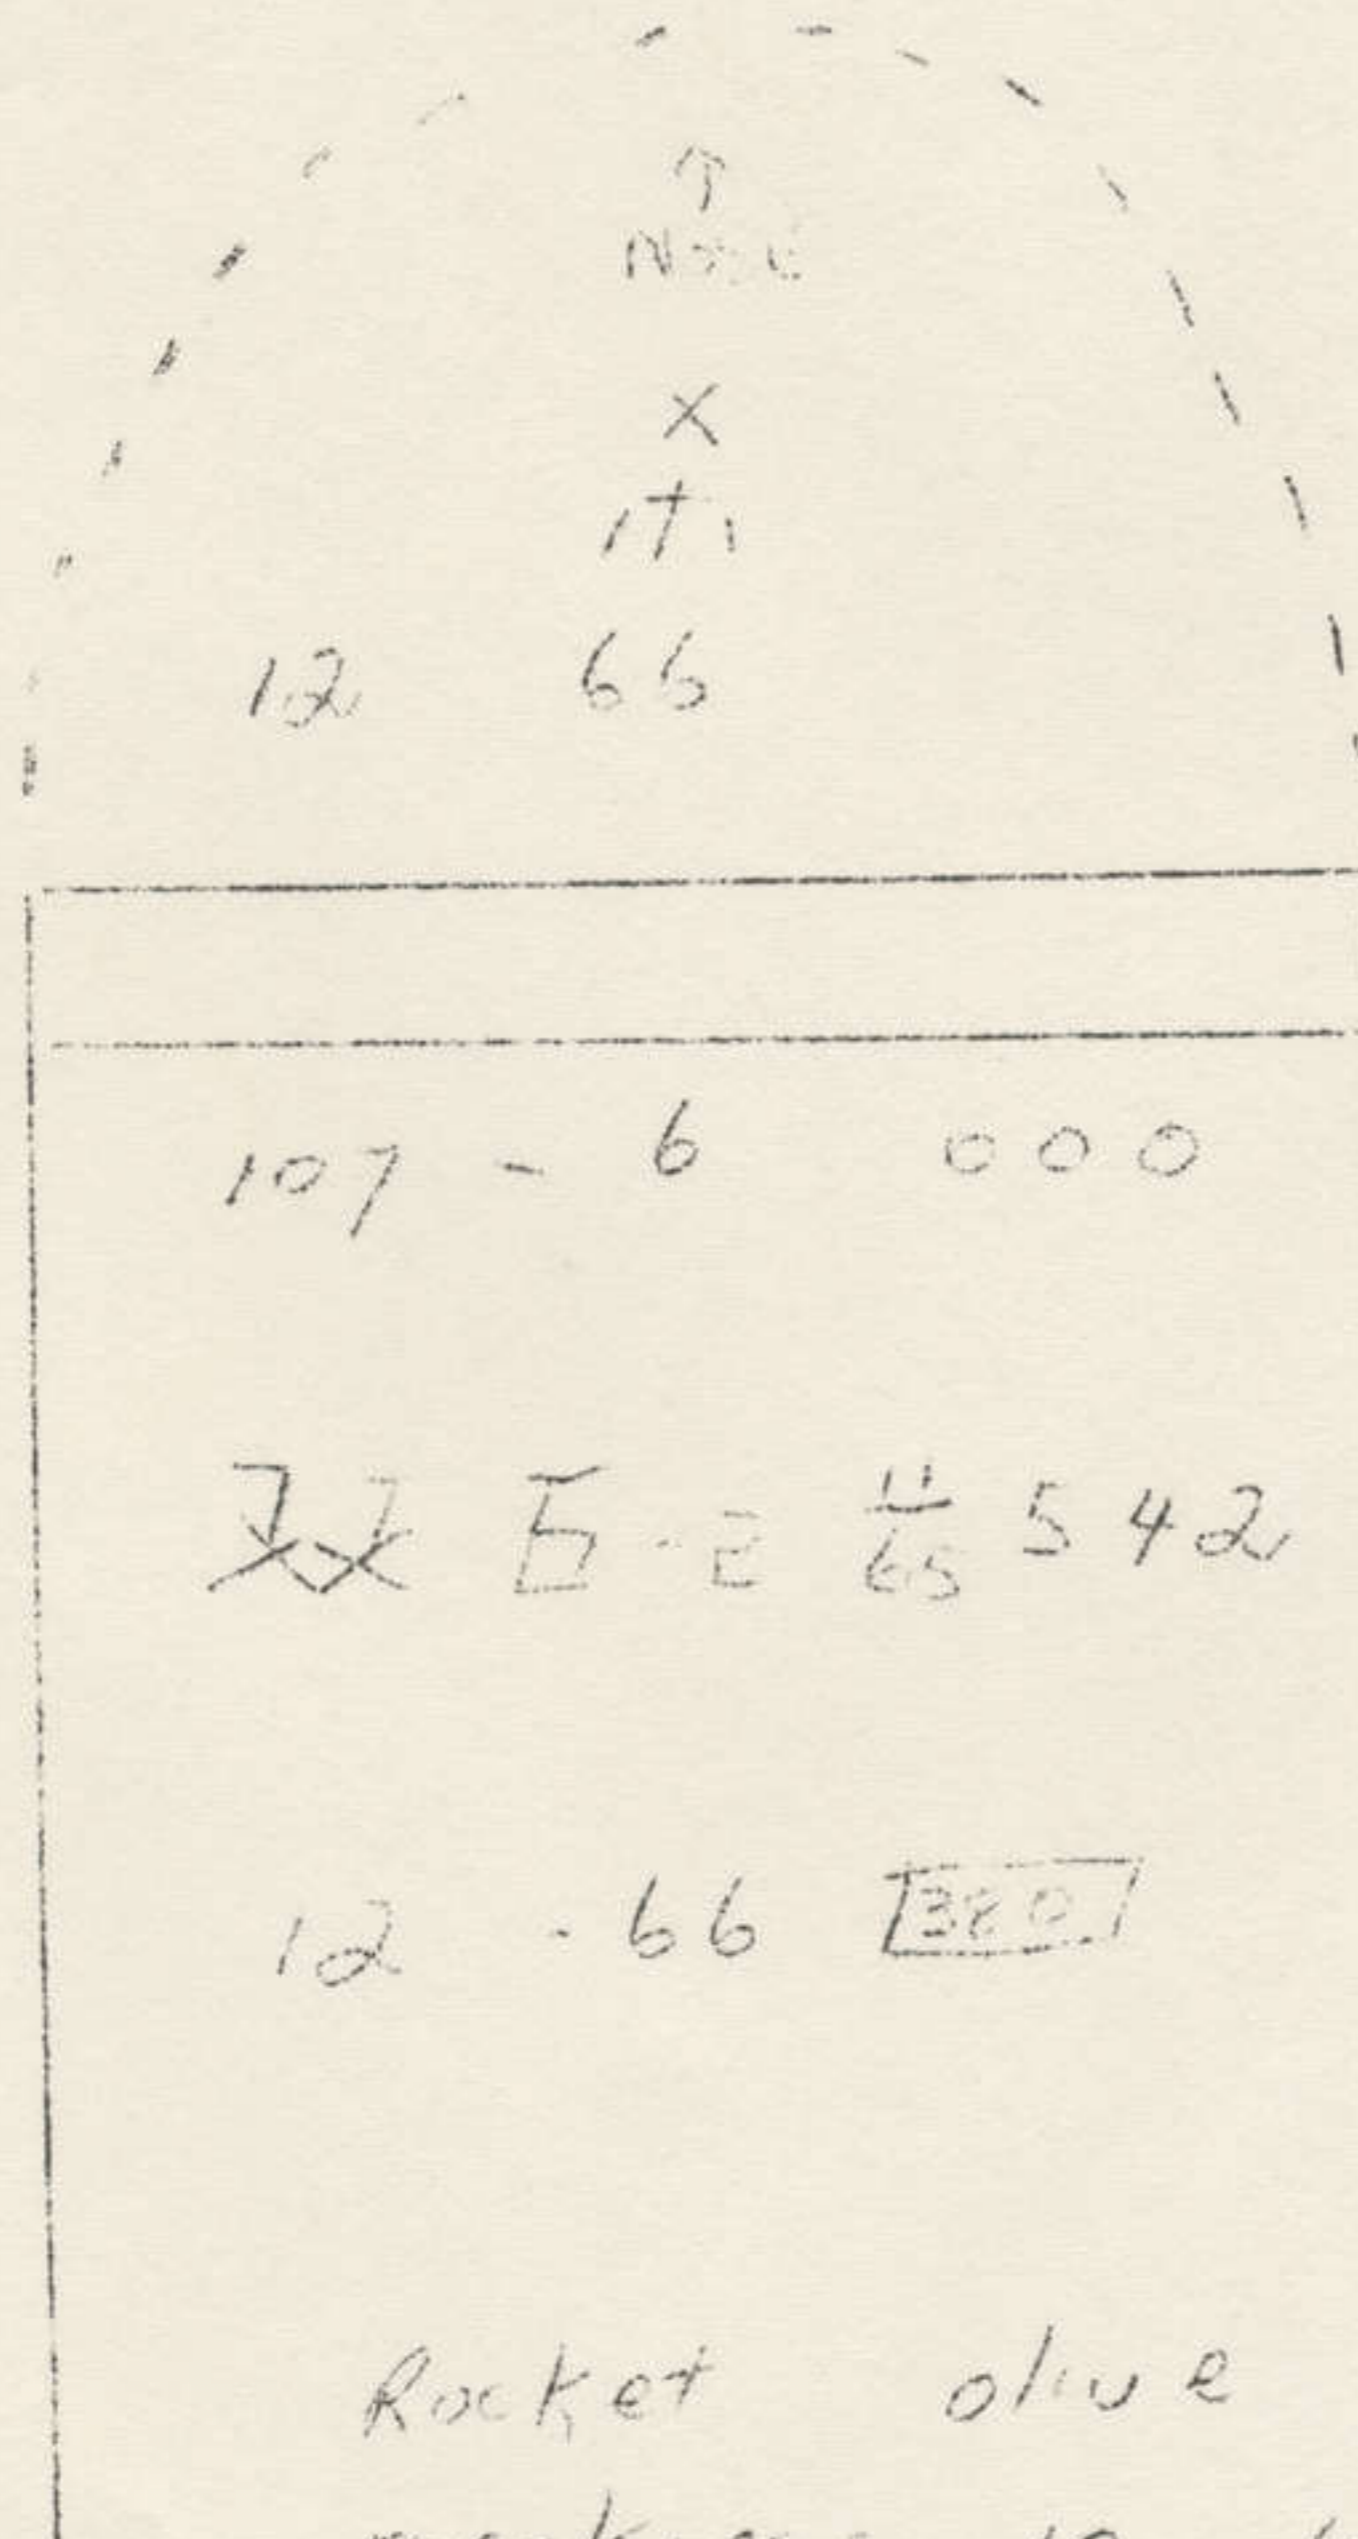 ↑
NOSE
X
12 66
107 - 6 000
双 Б - 2 11/65 542
12 - 66
Rocket olive